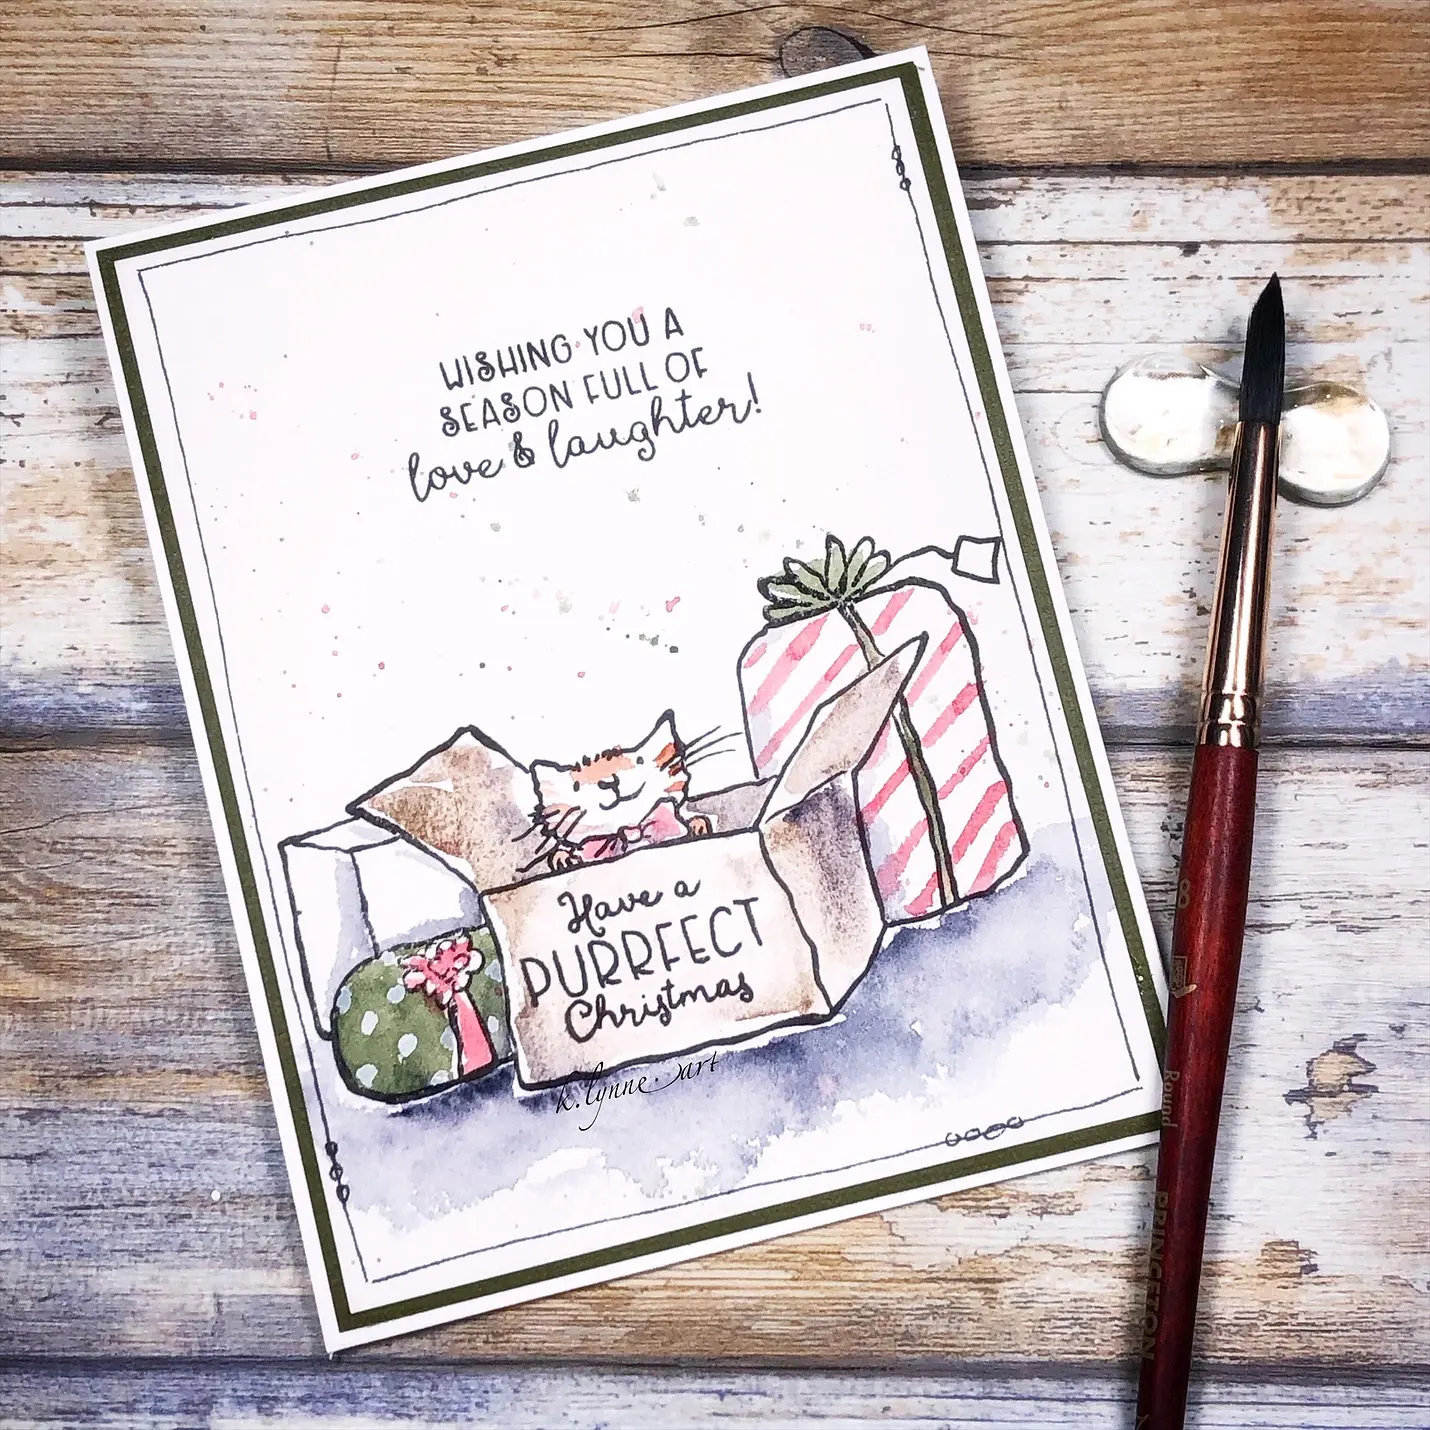 WISHING YOU A
SEASON FULL OF
love & laughter!
Have a
PURRFECT
Christmas
k.lynne.art
8
Round
PRINCETON